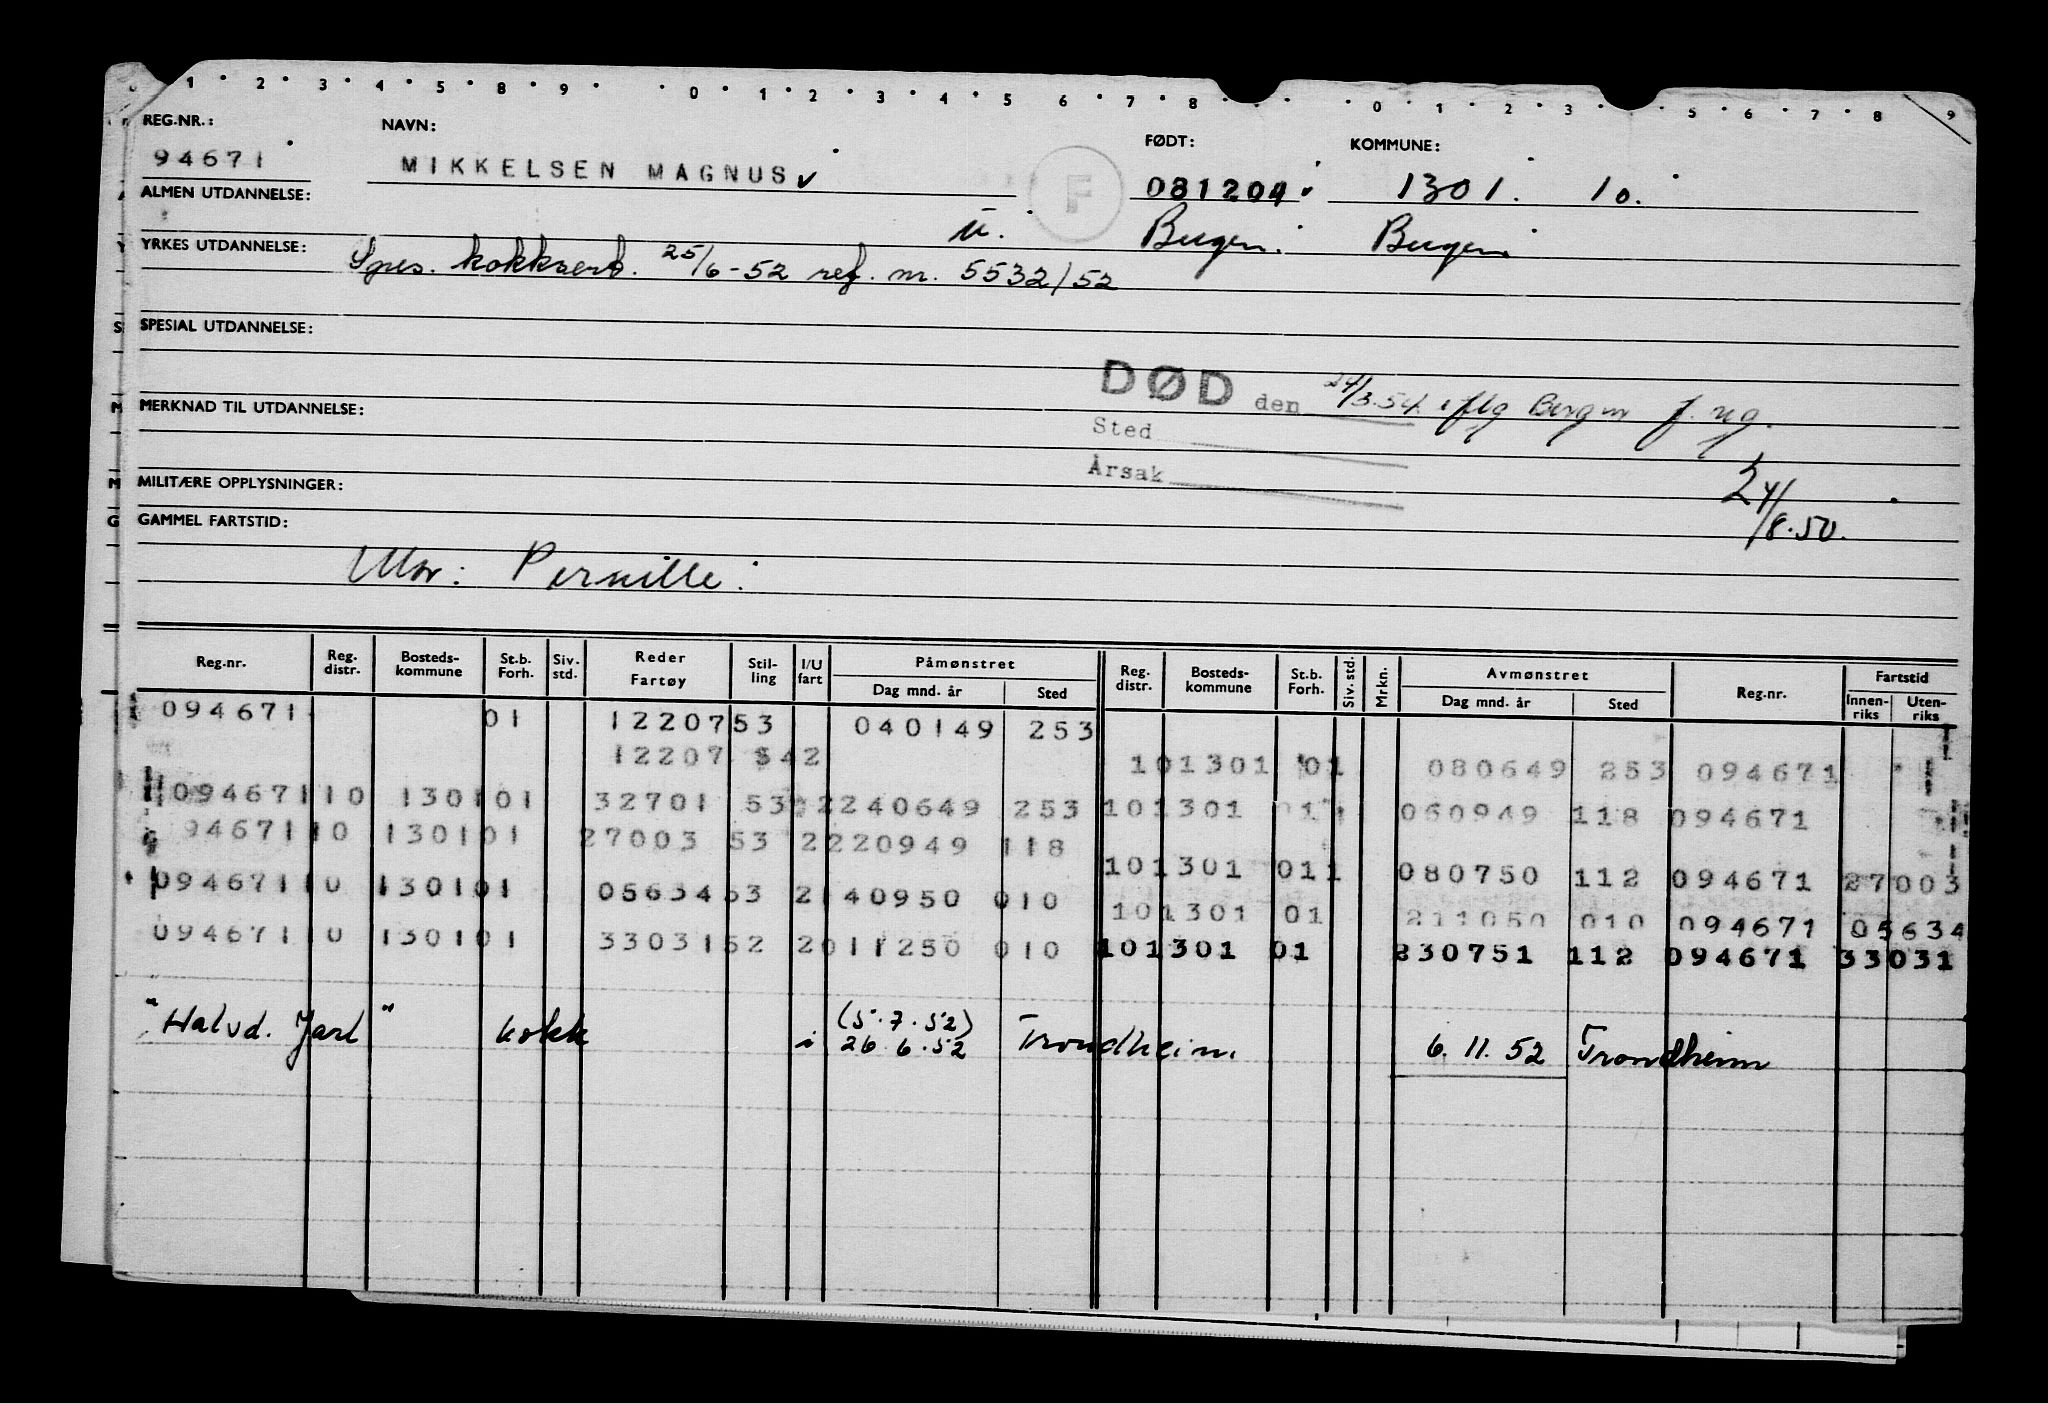 1 2 3 4 5 8 9 0 1 2 3 4 5 6 7 8 0 1 2 3 5 6 7 8 9
REG.NR.: NAVN: FØDT: KOMMUNE:
94671 MIKKELSEN MAGNUS ✓ F 081204 1301. 10.
ALMEN UTDANNELSE: u. Bergen. Bergen
YRKES UTDANNELSE: Spes. kokksert. 25/6-52 ref. nr. 5532/52
SPESIAL UTDANNELSE:
DØD den 24/3.54. iflg Bergen f. reg.
MERKNAD TIL UTDANNELSE:
Sted
Årsak
MILITÆRE OPPLYSNINGER: 24/8.50.
GAMMEL FARTSTID:
Mor: Pernille.
Reg.nr. Reg. distr. Bosteds-kommune St.b. Forh. Siv. std. Reder Fartøy Stil-ling I/U fart Påmønstret Dag mnd. år Sted Reg. distr. Bosteds-kommune St.b. Forh. Siv. std. Mrkn. Avmønstret Dag mnd. år Sted Reg.nr. Fartstid Innen-riks Uten-riks
094671 01 12207 53 040149 253
12207 542 101301 01 080649 253 094671
094671 10 1301 01 32701 53 2 240649 253 101301 01 060949 118 094671
94671 10 1301 01 27003 53 2 220949 118
101301 011 080750 112 094671 27003
094671 10 1301 01 05634 53 2 140950 010
101301 01 211050 010 094671 05634
094671 10 1301 01 33031 52 2 011250 010 101301 01 230751 112 094671 33031
"Halvd. Jarl" kokk i (5.7.52) 26.6.52 Trondheim. 6.11.52 Trondheim